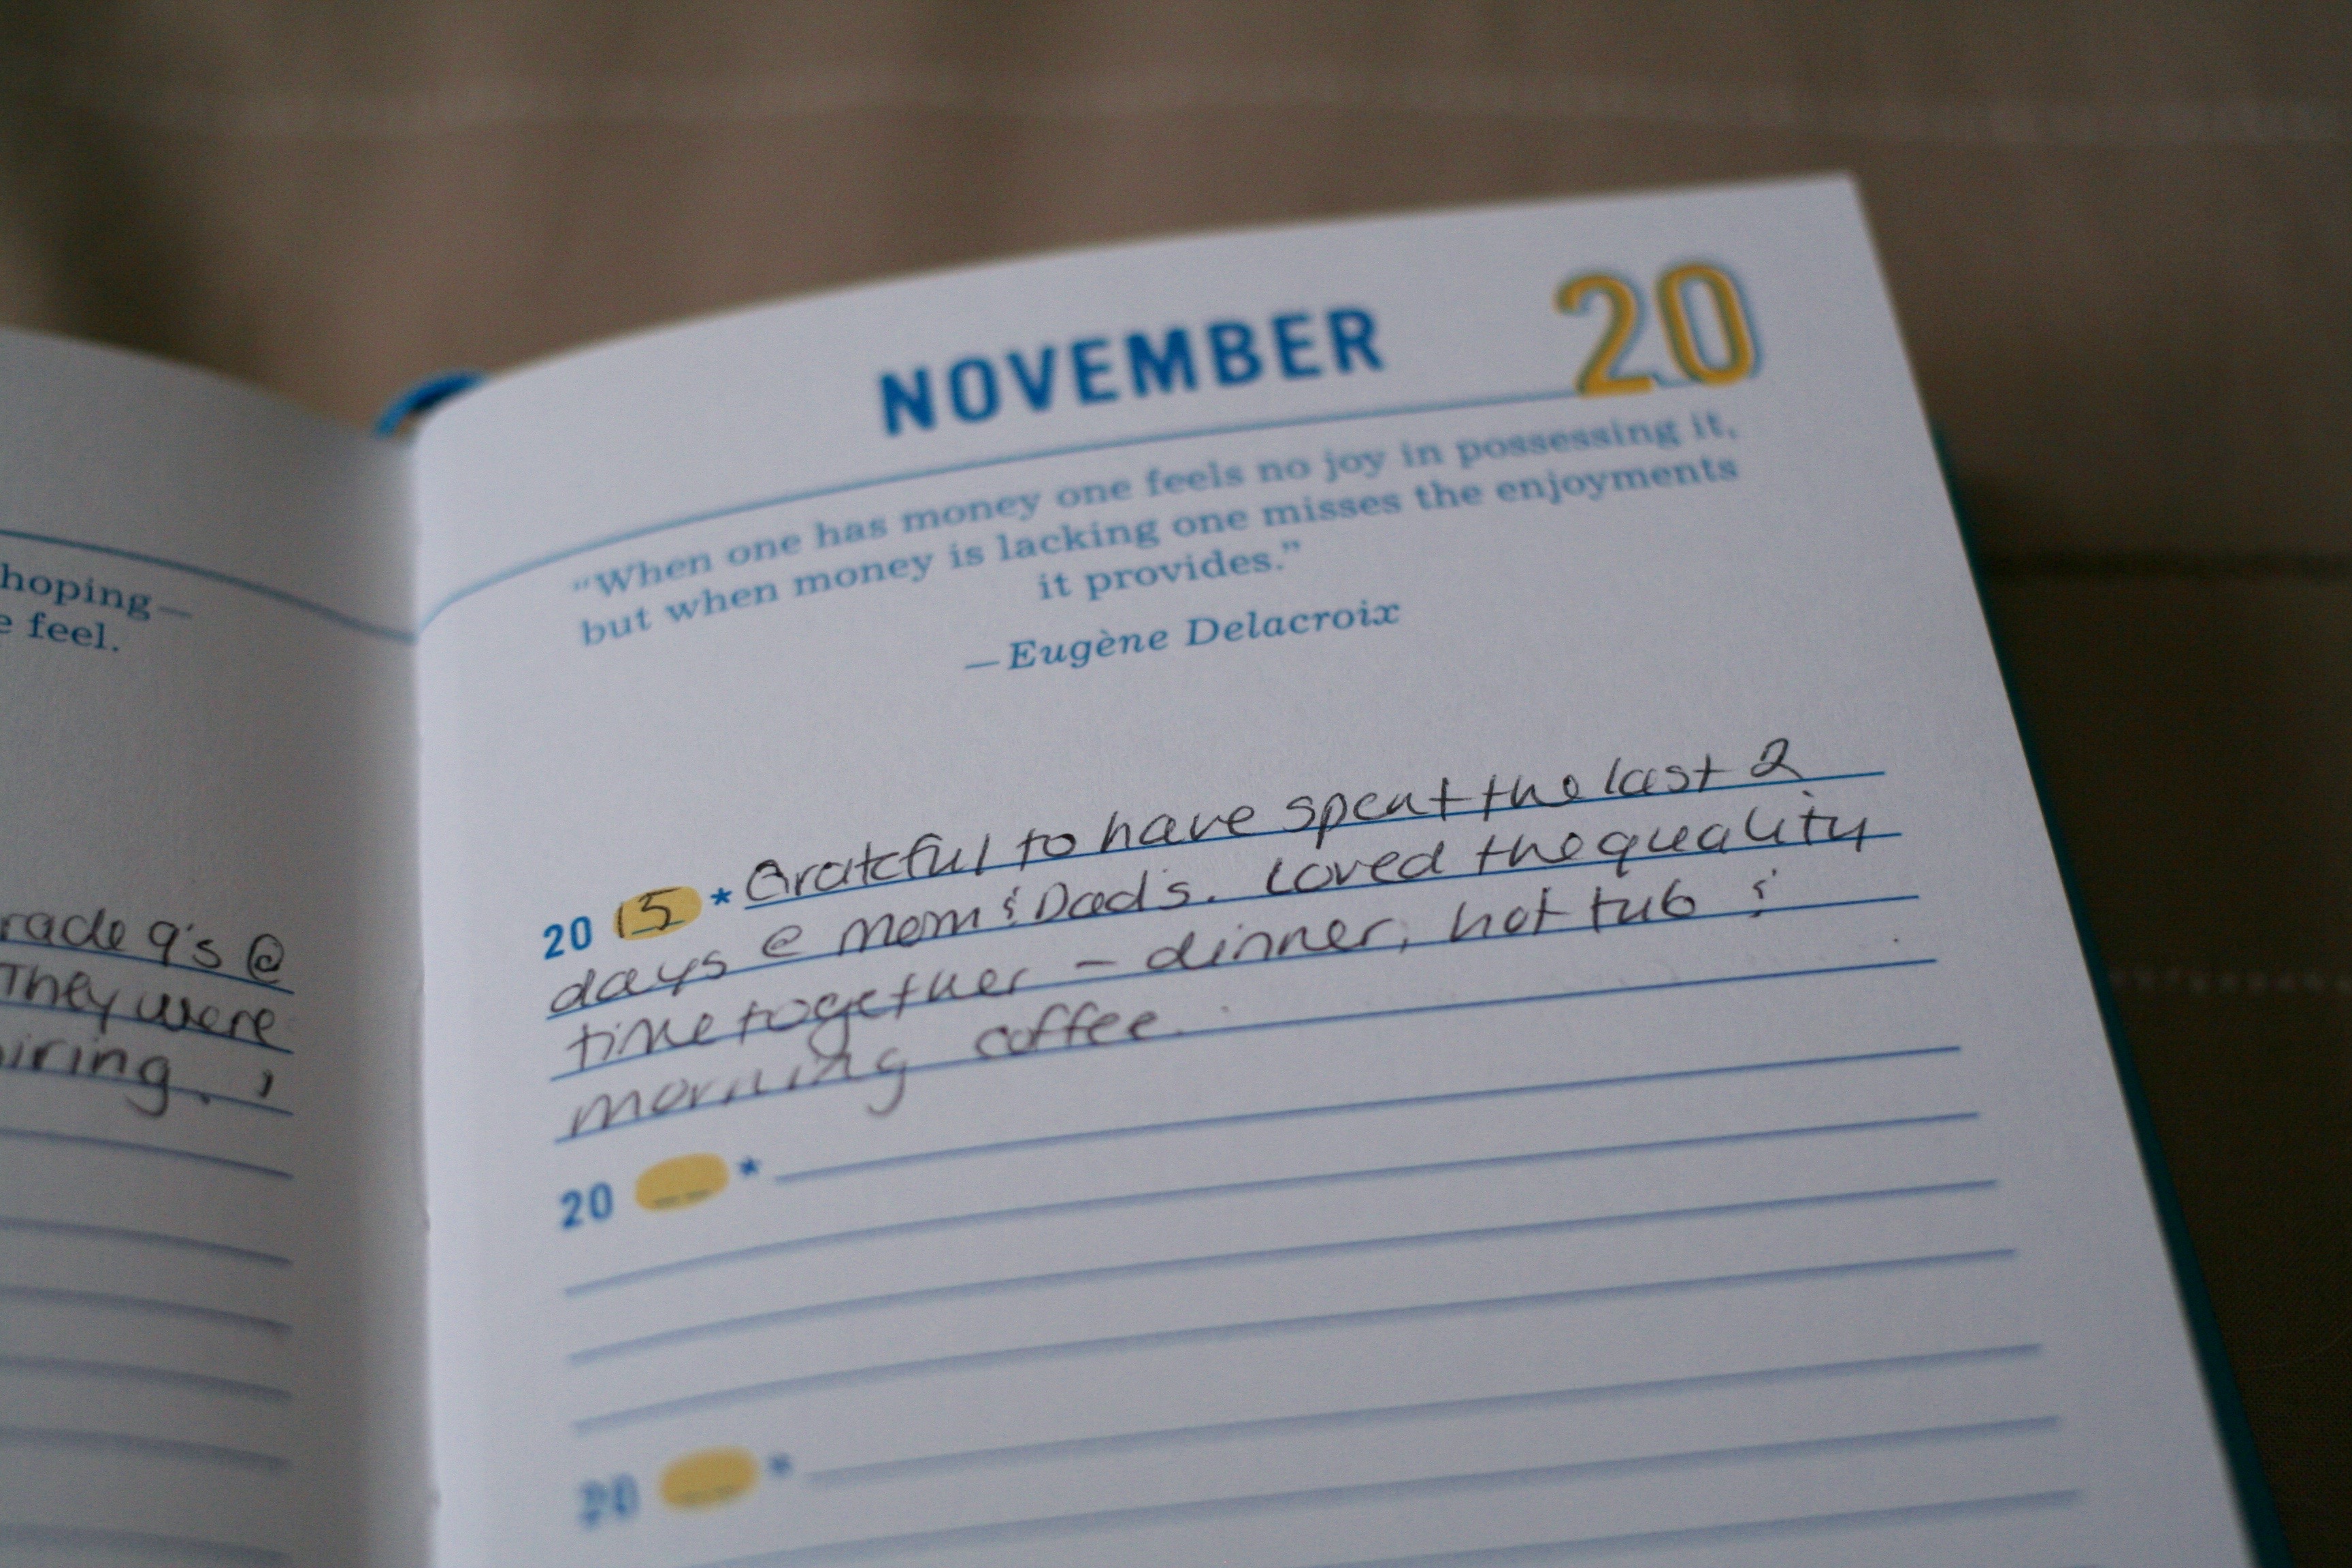 hoping—
feel.
9's @
They were
NOVEMBER 20
“When one has money one feels no joy in possessing it,
but when money is lacking one misses the enjoyments
it provides.”
—Eugène Delacroix
20 15 * Grateful to have spent the last 2
days @ Mom & Dad's. Loved the quality
time together - dinner, hot tub &
morning coffee.
20 *
20 *